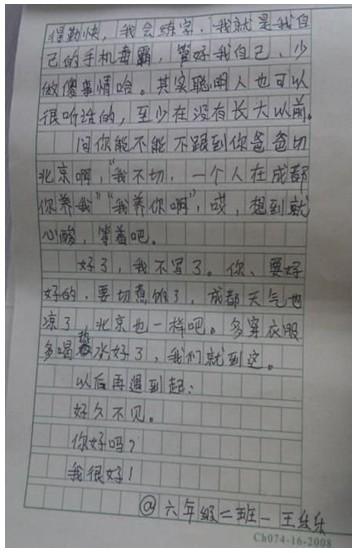 得勤快，我会练字，我就是我自
己的手机毒霸，管好我自己、少
做傻事情哈。其实聪明人也可以
很听话的，至少在没有长大以前。
问你能不能不跟到你爸爸切
北京啊，"我不切，一个人在成都
你养我""我养你啊"，哎，想到就
心酸，等着吧。
好了，我不写了。你、要好
好的，要切煮饭了，成都天气也
凉了，北京也一样吧。多穿衣服
多喝热水好了，我们就到这。
以后再遇到起：
好久不见。
你好吗？
我很好！
@六年级二班一王
Ch074-16-2008